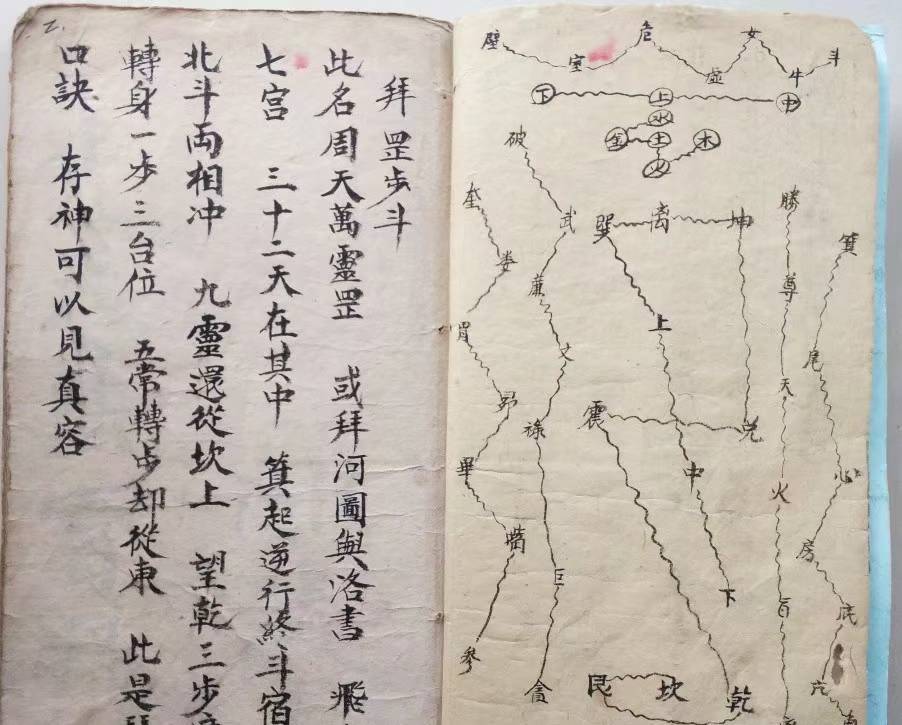 拜罡步斗
此名周天萬靈罡 或拜河圖與洛書 飛
七宫 三十二天在其中 箕起逆行終斗宿
北斗両相冲 九靈還從坎上 望乾三步
轉身一步三台位 五常轉步却從東 此是
口訣 存神可以見真容
壁 室 危 虚 女 牛 斗
下 上 中
水
金 土 木
火
破 武 廉 文 祿 巨 貪
奎 娄 胃 昴 畢 嘴 参
巽 离 坤
上 中 下
震 兑
艮 坎 乾
勝 尊 天 火 百
箕 尾 心 房 底 亢